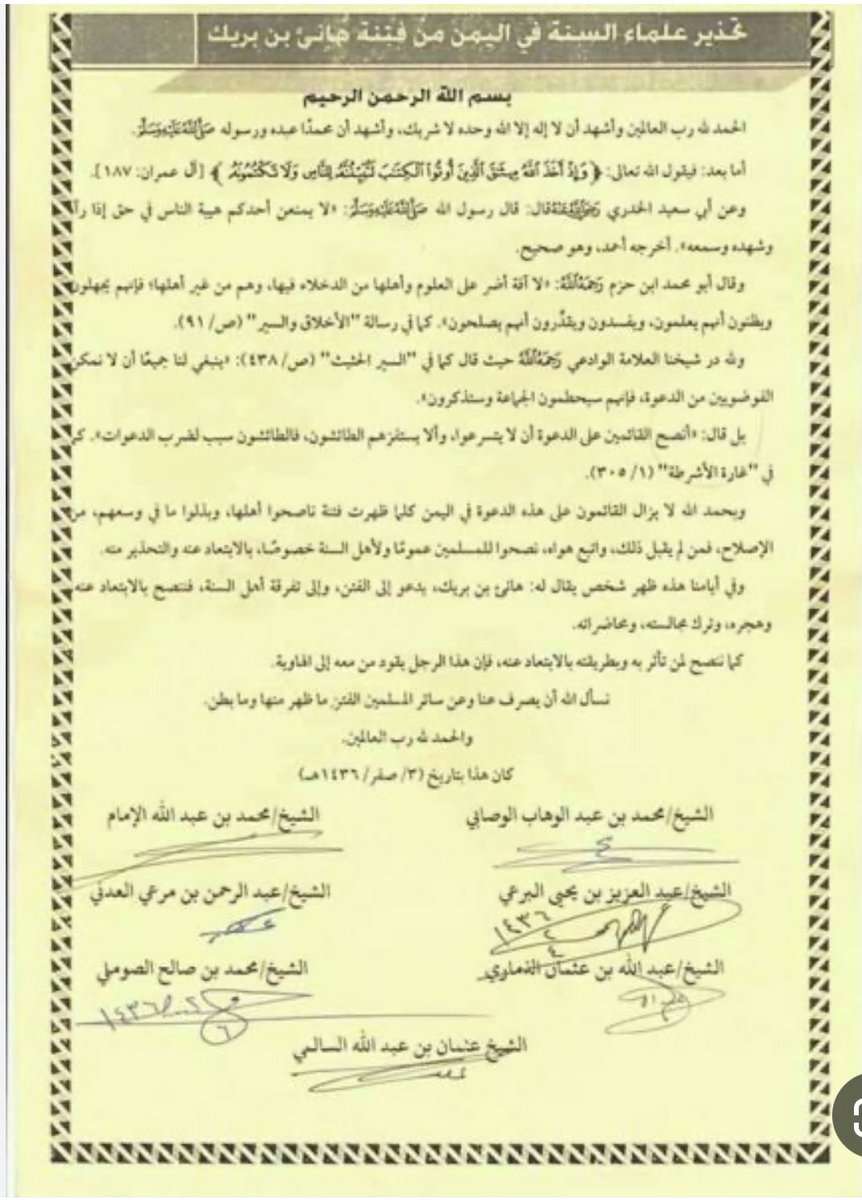 تحذير علماء السنة في اليمن من فتنة هانئ بن بريك
بسم الله الرحمن الرحيم
الحمد لله رب العالمين وأشهد أن لا إله إلا الله وحده لا شريك، وأشهد أن محمدًا عبده ورسوله صَلَّى اللَّهُ عَلَيْهِ وَسَلَّمَ.
أما بعد: فيقول الله تعالى: ﴿ وَإِذْ أَخَذَ اللَّهُ مِيثَاقَ الَّذِينَ أُوتُوا الْكِتَابَ لَتُبَيِّنُنَّهُ لِلنَّاسِ وَلَا تَكْتُمُونَهُ ﴾ [آل عمران: ١٨٧].
وعن أبي سعيد الخدري رَضِيَ اللَّهُ عَنْهُ قال: قال رسول الله صَلَّى اللَّهُ عَلَيْهِ وَسَلَّمَ: «لا يمنعن أحدكم هيبة الناس في حق إذا رآ
وشهده وسمعه». أخرجه أحمد، وهو صحيح.
وقال أبو محمد ابن حزم رَحِمَهُ اللَّهُ: «لا آفة أضر على العلوم وأهلها من الدخلاء فيها، وهم من غير أهلها؛ فإنهم يجهلون
ويظنون أنهم يعلمون، ويفسدون ويقدِّرون أنهم يصلحون». كما في رسالة "الأخلاق والسير" (ص/ ٩١).
ولله در شيخنا العلامة الوادعي رَحِمَهُ اللَّهُ حيث قال كما في "السير الحثيث" (ص/ ٤٣٨): «ينبغي لنا جميعًا أن لا نمكن
الفوضويين من الدعوة، فإنهم سيحطمون الجماعة وستذكرون».
بل قال: «أنصح القائمين على الدعوة أن لا يتسرعوا، وألا يستفزهم الطائشون، فالطائشون سبب لضرب الدعوات». كم
في "غارة الأشرطة" (١/ ٣٠٥).
وبحمد الله لا يزال القائمون على هذه الدعوة في اليمن كلما ظهرت فتنة ناصحوا أهلها، وبذلوا ما في وسعهم، من
الإصلاح، فمن لم يقبل ذلك، واتبع هواه، نصحوا للمسلمين عمومًا ولأهل السنة خصوصًا، بالابتعاد عنه والتحذير منه.
وفي أيامنا هذه ظهر شخص يقال له: هانئ بن بريك، يدعو إلى الفتن، وإلى تفرقة أهل السنة، فننصح بالابتعاد عنه
وهجره، وترك مجالسته، ومحاضراته.
كما ننصح لمن تأثر به وبطريقته بالابتعاد عنه، فإن هذا الرجل يقود من معه إلى الهاوية.
نسأل الله أن يصرف عنا وعن سائر المسلمين الفتن ما ظهر منها وما بطن.
والحمد لله رب العالمين.
كان هذا بتاريخ (٣/ صفر/ ١٤٣٦هـ)
الشيخ/محمد بن عبد الوهاب الوصابي
الشيخ/محمد بن عبد الله الإمام
الشيخ/عبد العزيز بن يحيى البرعي
الشيخ/عبد الرحمن بن مرعي العدني
١٤٣٦
الشيخ/عبد الله بن عثمان الذماري
الشيخ/محمد بن صالح الصوملي
١٤٣٦
الشيخ عثمان بن عبد الله السالمي